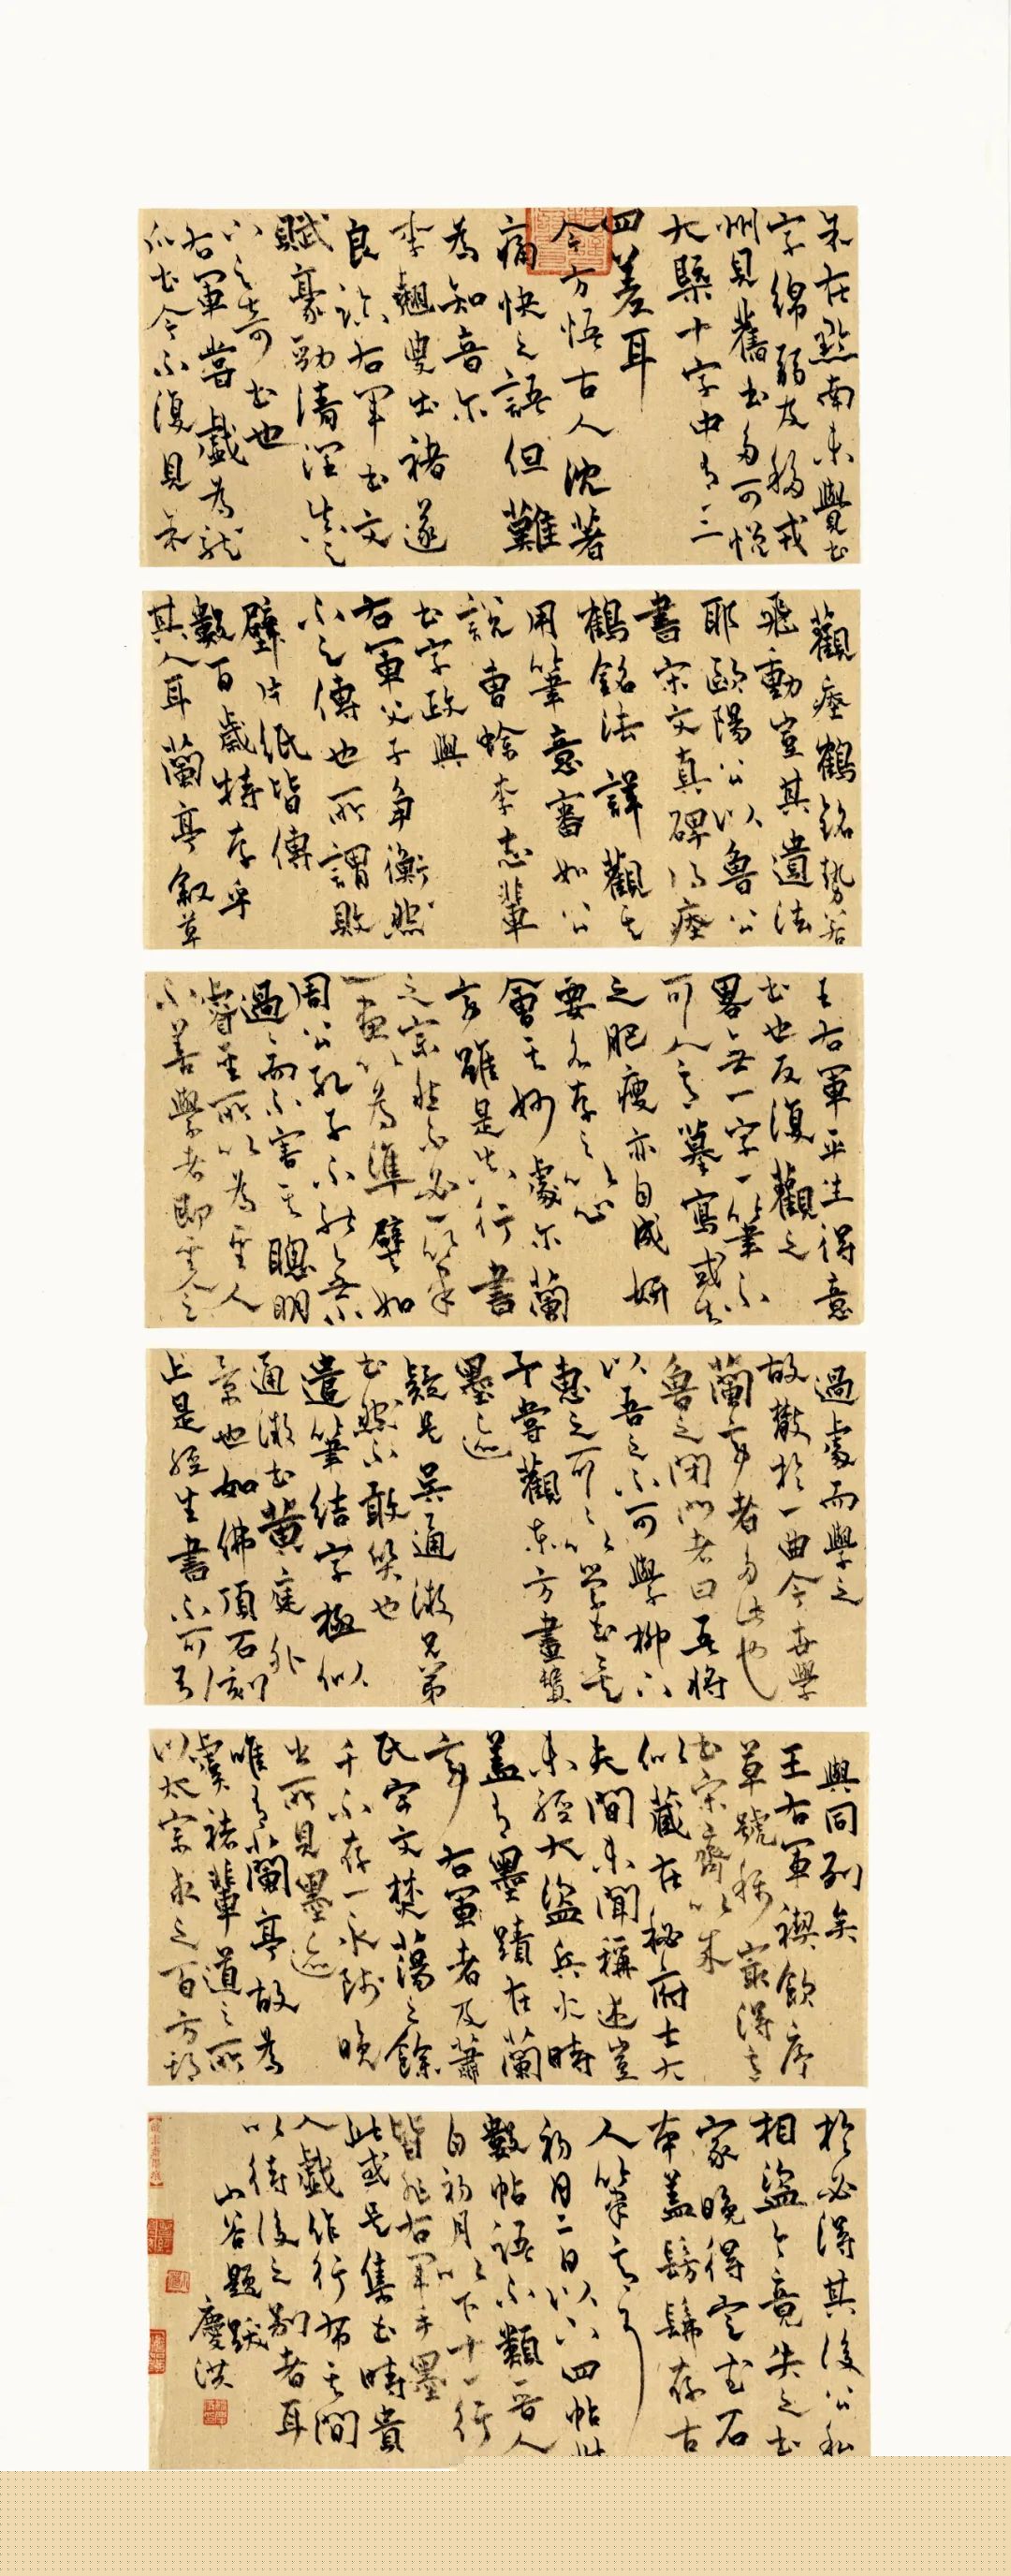 余在黔南未覺書
字綿弱及移戎
州見舊書多可憎
大概十字中有三
四差耳
今方悟古人沈著
痛快之語但難
為知音爾
李翹叟出褚遂
良臨右軍書文
賦豪勁清潤
天下之奇書也
右軍嘗戲為龍
爪書今不復見余
觀瘞鶴銘勢若
飛動豈其遺法
耶歐陽公以魯公
書宋文貞碑得瘞
鶴銘法詳觀其
用筆意審如公
說曹蜍李志輩
書字政與
右軍父子爭衡然
不足傳也所謂敗
壁片紙皆傳
數百歲特存乎
其人耳蘭亭敘草
王右軍平生得意
書也反復觀之
略無一字一筆不
可人意摹寫或失
之肥瘦亦自成妍
要各存之以心
會其妙處爾蘭
亭雖是真行書
之宗然不必一筆
一畫以為準譬如
周公孔子不能無小
過過而不害其聰明
睿聖所以為聖人
不善學者即聖人之
過處而學之
故蔽於一曲今世學
蘭亭者多此也
魯之閉門者曰吾將
以吾之不可學柳下
惠之可可以學書矣
予嘗觀東方畫贊
墨跡
疑是吳通微兄弟
書然不敢質也
遣筆結字極似
通微書黃庭外
景也如佛頂石刻
止是經生書不可引
與同列矣
王右軍禊飲序
草號稱最得意
書宋齊以來
似藏在秘府士大
夫間未聞稱述豈
未經大盜兵火時
蓋有墨蹟在蘭
亭右者及蕭
氏宇文焚蕩之餘
千不存一永師晚
出所見墨跡
唯有蘭亭故為
虞褚輩道之所
以太宗求之百方期
於必得其後公私
相盜今竟失之書
家晚得定武石
本蓋髣髴存古
人筆意耳
初月二日以下四帖
數帖語不類晉人
自初月以下十一行
皆非右軍手墨
此或是集書時貴
人戲作行布其間
以待後之別者耳
山谷題跋
慶洪